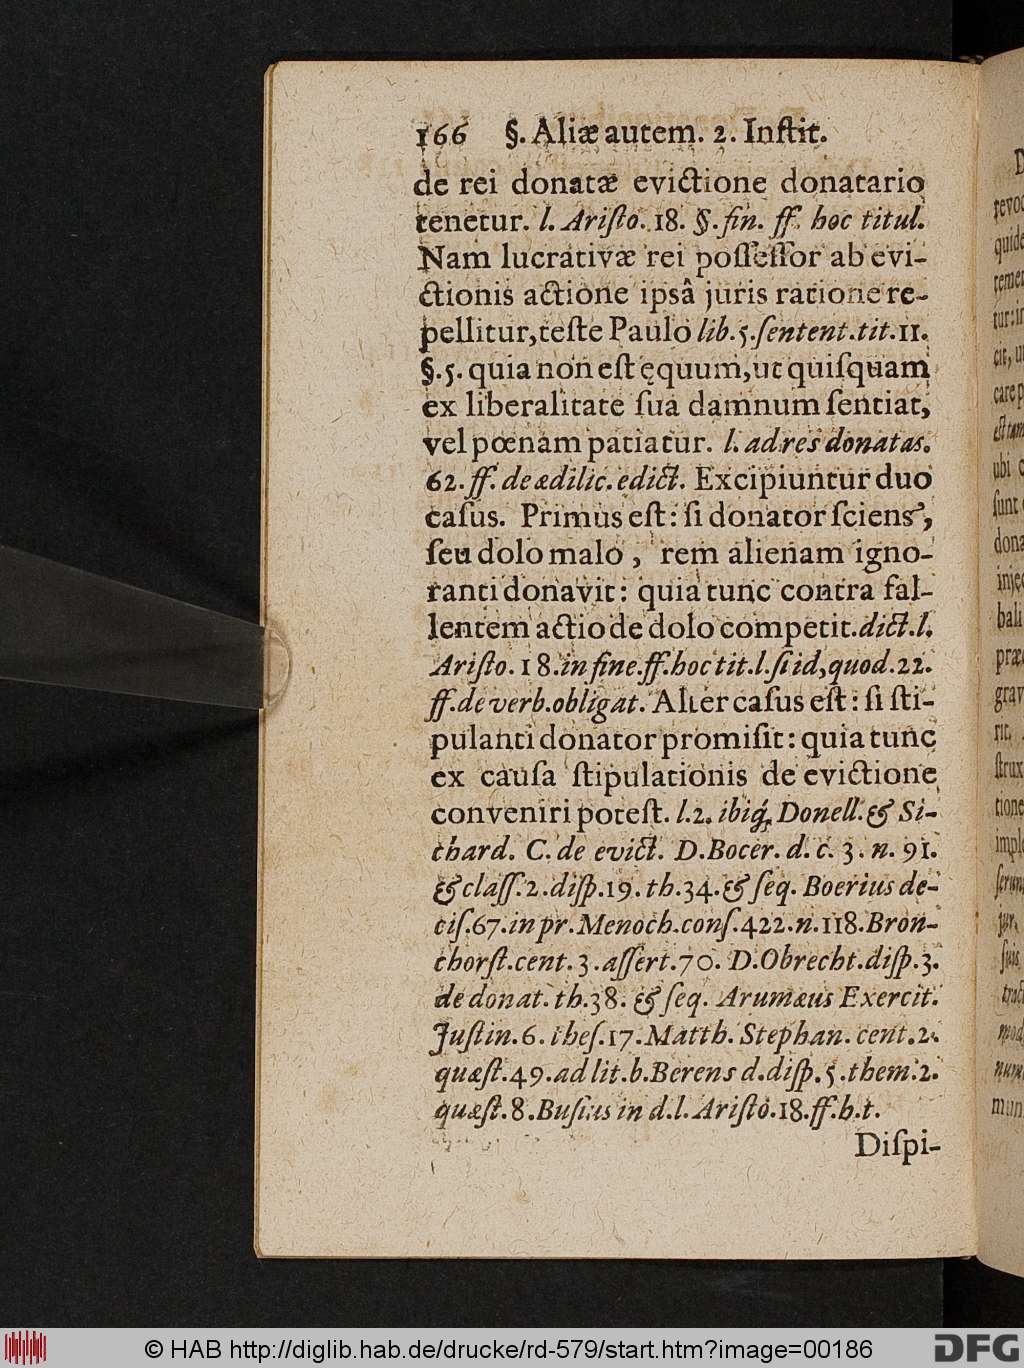 166 §. Aliæ autem. 2. Inſtit.
de rei donatæ evictione donatario
tenetur. l. Ariſto. 18. §. fin. ff. hoc titul.
Nam lucrativæ rei poſſeſſor ab evi-
ctionis actione ipsâ juris ratione re-
pellitur, teſte Paulo lib. 5. ſentent. tit. 11.
§. 5. quia non eſt ęquum, ut quiſquam
ex liberalitate ſua damnum ſentiat,
vel pœnam patiatur. l. ad res donatas.
62. ff. de ædilic. edict. Excipiuntur duo
caſus. Primus eſt: ſi donator ſciens,
ſeu dolo malo, rem alienam igno-
ranti donavit: quia tunc contra fal-
lentem actio de dolo competit. dict. l.
Ariſto. 18. in fine. ff. hoc tit. l. ſi id, quod. 22.
ff. de verb. obligat. Alter caſus eſt: ſi ſti-
pulanti donator promiſit: quia tunc
ex cauſa ſtipulationis de evictione
conveniri poteſt. l. 2. ibiq́; Donell. & Si-
chard. C. de evict. D. Bocer. d. c. 3. n. 91.
& claſſ. 2. diſp. 19. th. 34. & ſeq. Boerius de-
ciſ. 67. in pr. Menoch. conſ. 422. n. 118. Bron-
chorſt. cent. 3. aſſert. 70. D. Obrecht. diſp. 3.
de donat. th. 38. & ſeq. Arumæus Exercit.
Juſtin. 6. theſ. 17. Matth. Stephan. cent. 2.
quæſt. 49. ad lit. b. Berens d. diſp. 5. them. 2.
quæſt. 8. Buſius in d. l. Ariſto. 18. ff. h. t.
Diſpi-
© HAB http://diglib.hab.de/drucke/rd-579/start.htm?image=00186
DFG